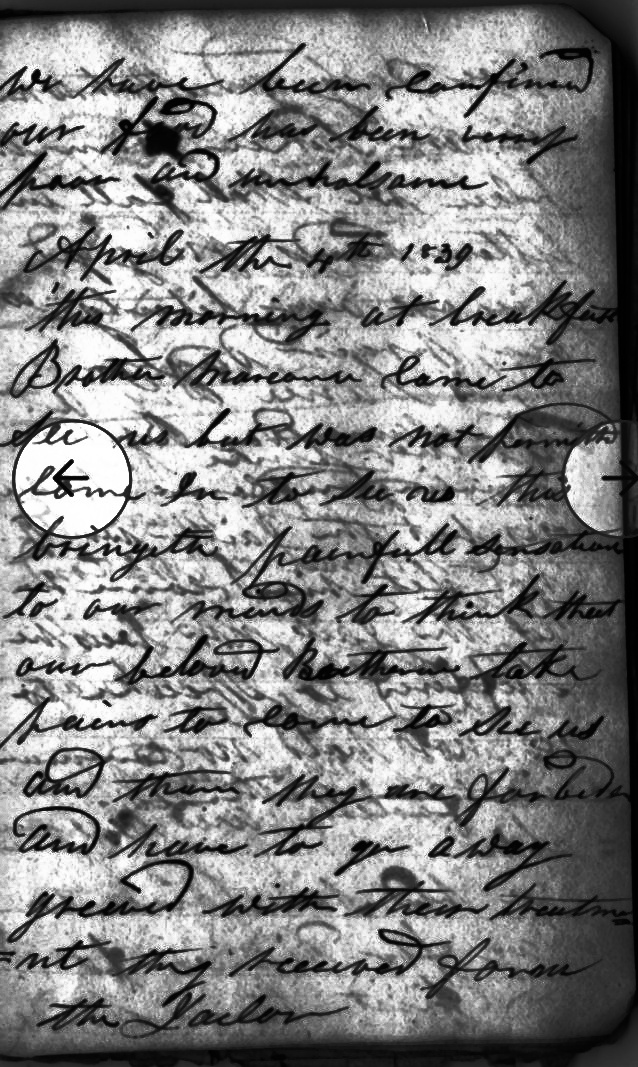 we have been confined
our food has been very
poor and unholsame
April the 4th 1839
this morning at breakfast
Brother come to
see us but was not permitted
Come In to see us this
bringeth painfull sensations
to our minds to think that
our belovd take
pains to come to see us
and then they are forbiden
and have to go away
greeved with their treatme
=nt they received form
the Jaelor